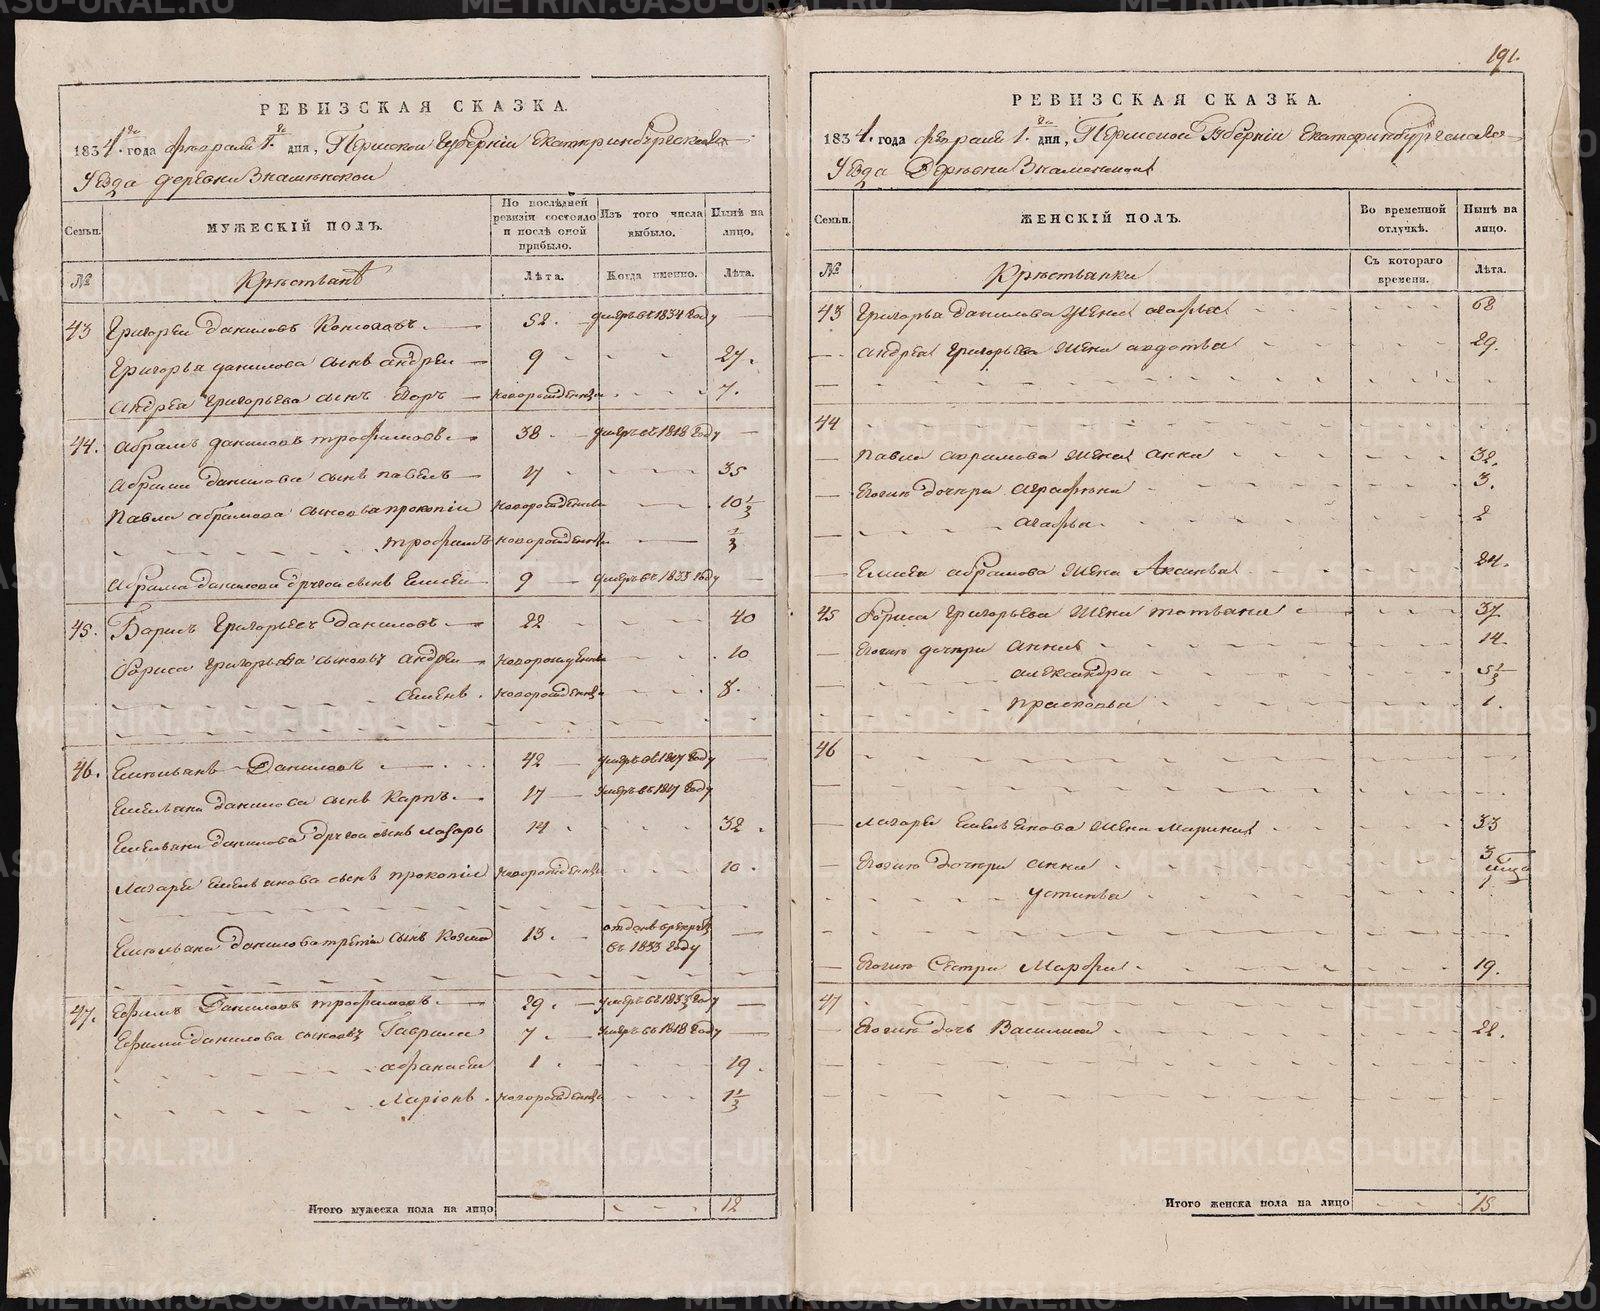 191.
РЕВИЗСКАЯ СКАЗКА.
1834. года февраля 1. дня, Пермской Губерніи Екатеринбургскаго
Уезда деревни Знаменской
Семьи.
МУЖЕСКІЙ ПОЛЪ.
По последней ревизіи состояло и после оной прибыло.
Изъ того числа выбыло.
Ныне на лицо.
№
Крестьяне
Лѣта.
Когда именно.
Лѣта.
43 Григорей Даниловъ 52. умеръ въ 1834 году
Григорья данилова сынъ андреи 9 27.
Андрея Григорьева сынъ Егоръ новорожденны 7.
44. Абрамъ даниловъ трофимовъ 38. умеръ въ 1818 году
Абрама Данилова сынъ павелъ 35
Павла абрамова сыновья прокопіи новорожденны 10 1/3
трофимъ новорожденны 1/3
Абрама данилова другой сынъ Елисеи 9 умеръ въ 1833 году
45. Борисъ Григорьевъ Даниловъ 22 40
бориса григорьева сыновья Андреи новорожденны 10
семенъ. новорожденны 8.
46. Емельянъ Даниловъ 42 умеръ въ 1827 году
Емельяна данилова сынъ Карпъ. 17 умеръ въ 1817 году
Емельяна данилова другой сынъ лазарь 14 32.
Лазаря емельянова сынъ прокопіи новорожденны 10.
Емельяна данилова третіи сынъ Козма 13. отданъ в рекруты въ 1833 году
47. Ефимъ Даниловъ трофимовъ. 29. умеръ въ 1833 году
Ефима данилова сыновья Гаврила 7. умеръ въ 1818 году
афанасеи 1 19.
Ларіонъ. новорожденны 1 1/3
Итого мужеска пола на лицо 12
РЕВИЗСКАЯ СКАЗКА.
1834. года февраля 1. дня, Пермской Губерніи Екатеринбургскаго
Уезда Деревни Знаменской
Семьи.
ЖЕНСКІЙ ПОЛЪ.
Во временной отлучкѣ.
Ныне на лицо.
№
Крестьянки
Съ котораго времени.
Лѣта.
43 Григорья данилова жена агафья 68
андрея григорьева жена авдотья 29.
44
Павла абрамова жена анна 32.
Евоню дочери аграфена 3.
агафья. 2
Елисея абрамова жена Аксинья 24.
45 бориса Григорьева жена татьяна 37
Евоню дочери анна 14
александра 5 1/3
прасковья 1.
46
лазаря емельянова жена Марина 33
Евоню дочери анна 3
устинья 1
Евоню Сестра Марфа. 19.
47
Евоню дочь Василиса 22.
Итого женска пола на лицо 15
METRIKI.GASO-URAL.RU